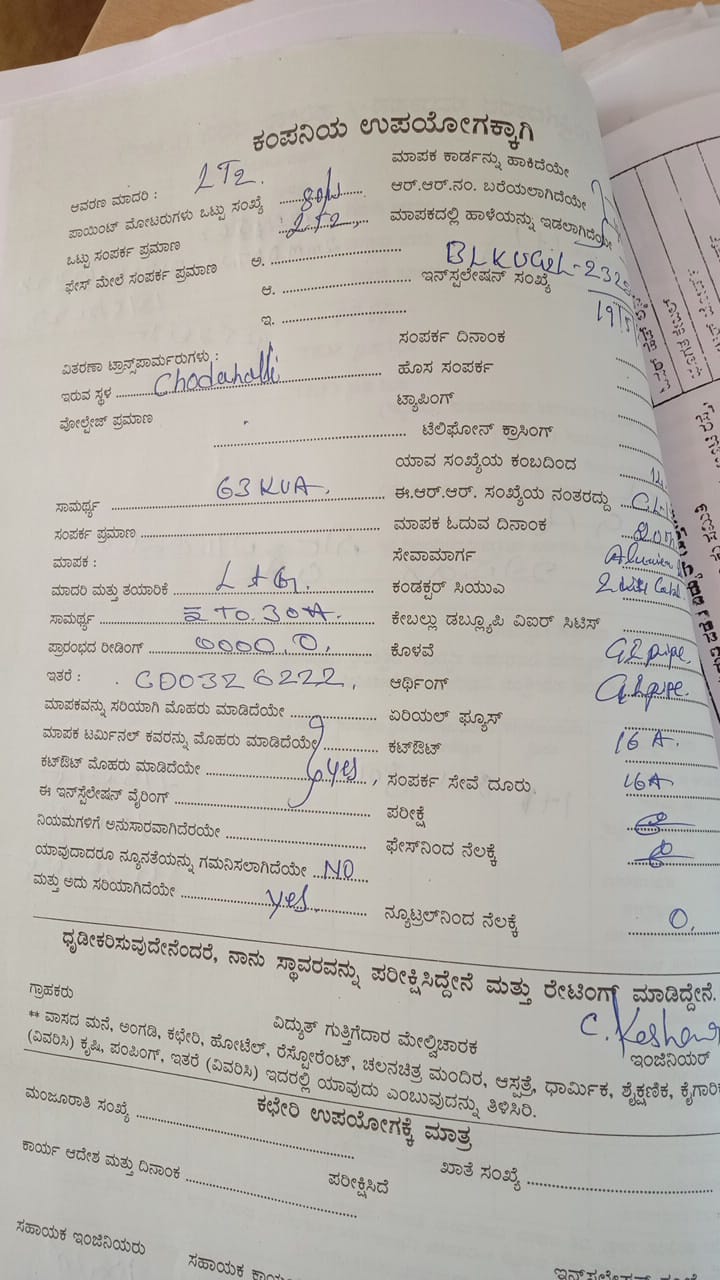 ಕಂಪನಿಯ ಉಪಯೋಗಕ್ಕಾಗಿ
ಆವರಣ ಮಾದರಿ : LT2.
ಮಾಪಕ ಕಾರ್ಡನ್ನು ಹಾಕಿದೆಯೇ
ಪಾಯಿಂಟ್ ಮೋಟರುಗಳು ಒಟ್ಟು ಸಂಖ್ಯೆ
ಆರ್.ಆರ್.ನಂ. ಬರೆಯಲಾಗಿದೆಯೇ
ಒಟ್ಟು ಸಂಪರ್ಕ ಪ್ರಮಾಣ LT2,
ಮಾಪಕದಲ್ಲಿ ಹಾಳೆಯನ್ನು ಇಡಲಾಗಿದೆಯೇ
ಫೇಸ್ ಮೇಲೆ ಸಂಪರ್ಕ ಪ್ರಮಾಣ ಅ. ........
ಆ. ........
ಇನ್‌ಸ್ಪಲೇಷನ್ ಸಂಖ್ಯೆ
ಇ. ........
ವಿತರಣಾ ಟ್ರಾನ್ಸ್‌ಪಾರ್ಮರುಗಳು :
ಸಂಪರ್ಕ ದಿನಾಂಕ
ಇರುವ ಸ್ಥಳ Chodahalli
ಹೊಸ ಸಂಪರ್ಕ
ವೋಲ್ಟೇಜ್ ಪ್ರಮಾಣ
ಟ್ಯಾಪಿಂಗ್
ಟೆಲಿಫೋನ್ ಕ್ರಾಸಿಂಗ್
ಯಾವ ಸಂಖ್ಯೆಯ ಕಂಬದಿಂದ
ಸಾಮರ್ಥ್ಯ 63 KVA.
ಈ.ಆರ್.ಆರ್. ಸಂಖ್ಯೆಯ ನಂತರದ್ದು
ಸಂಪರ್ಕ ಪ್ರಮಾಣ ........
ಮಾಪಕ ಓದುವ ದಿನಾಂಕ
ಮಾಪಕ :
ಸೇವಾಮಾರ್ಗ
ಮಾದರಿ ಮತ್ತು ತಯಾರಿಕೆ L & G.
ಕಂಡಕ್ಟರ್ ಸಿಯುಎ
ಸಾಮರ್ಥ್ಯ 5 TO 30 A.
ಕೇಬಲ್ಲು ಡಬ್ಲ್ಯೂಪಿ ವಿಐರ್ ಸಿಟಿಸ್
ಪ್ರಾರಂಭದ ರೀಡಿಂಗ್ 0000.0,
ಕೊಳವೆ GI pipe
ಇತರೆ :
ಆರ್ಥಿಂಗ್ GI pipe.
ಮಾಪಕವನ್ನು ಸರಿಯಾಗಿ ಮೊಹರು ಮಾಡಿದೆಯೇ
ಏರಿಯಲ್ ಫ್ಯೂಸ್
ಮಾಪಕ ಟರ್ಮಿನಲ್ ಕವರನ್ನು ಮೊಹರು ಮಾಡಿದೆಯೇ
ಕಟ್‌ಔಟ್ 16 A.
ಕಟ್‌ಔಟ್ ಮೊಹರು ಮಾಡಿದೆಯೇ yes,
ಸಂಪರ್ಕ ಸೇವೆ ದೂರು 16A
ಈ ಇನ್‌ಸ್ಪೆಲೇಷನ್ ವೈರಿಂಗ್
ಪರೀಕ್ಷೆ
ನಿಯಮಗಳಿಗೆ ಅನುಸಾರವಾಗಿದೆರಯೇ
ಫೇಸ್‌ನಿಂದ ನೆಲಕ್ಕೆ
ಯಾವುದಾದರೂ ನ್ಯೂನತೆಯನ್ನು ಗಮನಿಸಲಾಗಿದೆಯೇ NO
ಮತ್ತು ಅದು ಸರಿಯಾಗಿದೆಯೇ yes.
ನ್ಯೂಟ್ರಲ್‌ನಿಂದ ನೆಲಕ್ಕೆ 0,
ಧೃಡೀಕರಿಸುವುದೇನೆಂದರೆ, ನಾನು ಸ್ಥಾವರವನ್ನು ಪರೀಕ್ಷಿಸಿದ್ದೇನೆ ಮತ್ತು ರೇಟಿಂಗ್ ಮಾಡಿದ್ದೇನೆ.
ಗ್ರಾಹಕರು
ವಿದ್ಯುತ್ ಗುತ್ತಿಗೆದಾರ ಮೇಲ್ವಿಚಾರಕ
ಇಂಜಿನಿಯರ್
** ವಾಸದ ಮನೆ, ಅಂಗಡಿ, ಕಛೇರಿ, ಹೋಟೆಲ್, ರೆಸ್ಟೋರೆಂಟ್, ಚಲನಚಿತ್ರ ಮಂದಿರ, ಆಸ್ಪತ್ರೆ, ಧಾರ್ಮಿಕ, ಶೈಕ್ಷಣಿಕ,
(ವಿವರಿಸಿ) ಕೃಷಿ, ಪಂಪಿಂಗ್, ಇತರೆ (ವಿವರಿಸಿ) ಇದರಲ್ಲಿ ಯಾವುದು ಎಂಬುವುದನ್ನು ತಿಳಿಸಿರಿ.
ಕಛೇರಿ ಉಪಯೋಗಕ್ಕೆ ಮಾತ್ರ
ಮಂಜೂರಾತಿ ಸಂಖ್ಯೆ ........
ಖಾತೆ ಸಂಖ್ಯೆ ........
ಕಾರ್ಯ ಆದೇಶ ಮತ್ತು ದಿನಾಂಕ ........
ಪರೀಕ್ಷಿಸಿದೆ
ಸಹಾಯಕ ಇಂಜಿನಿಯರು